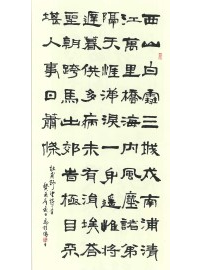 西山白雪三城戍南浦清
江萬里橋海内風塵諸弟
隔天涯涕淚一身遙惟將
遲暮供多病未有涓埃答
聖朝跨馬出郊時極目不
堪人事日蕭條
杜甫詩野望